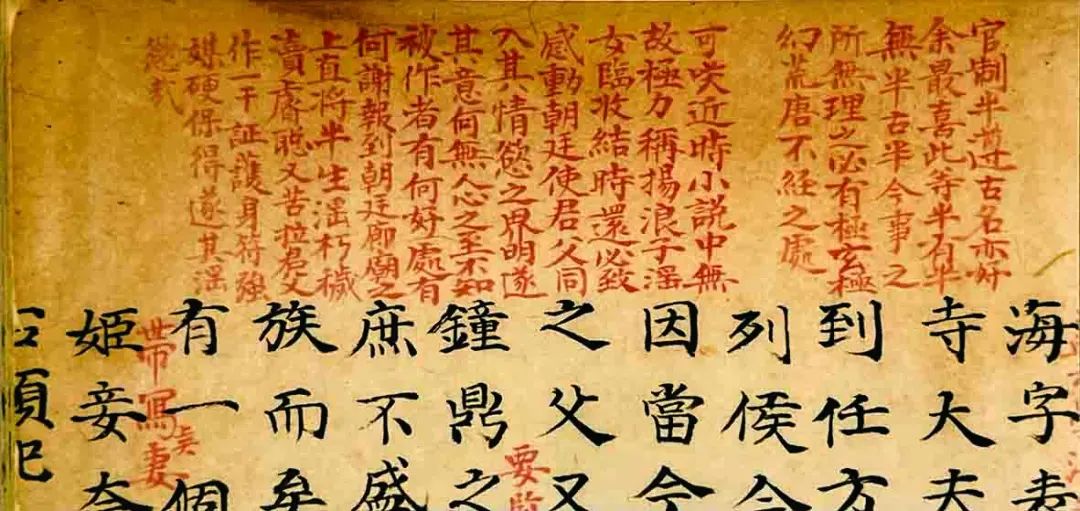 官制半遵古名亦好
余最喜此等半有半
無半古半今事之
所無理之必有極玄極
幻荒唐不經之處
可笑近時小說中無
故極力稱揚浪子淫
女臨收結時還必致
感動朝廷使君父同
入其情慾之界明遂
其意何無人心之至不知
被作者有何好處有
何謝報到朝廷廊廟之
上直將半生淫朽穢
瀆睿聰又苦拉君父
作一干証護身符強
媒硬保得遂其淫
慾哉
海字表
寺大夫
到任方
列侯今
因當今
之父又
鐘鼎之
庶不盛
族而矣
有一個
姬妾奈
項祀
帶寫妻
要監